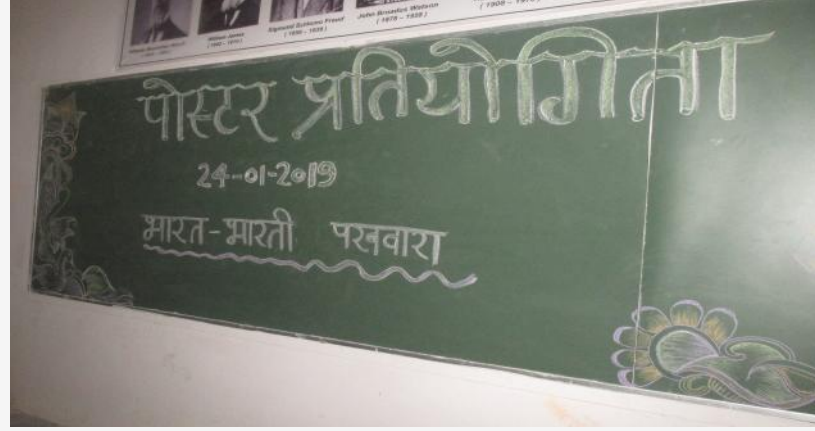 William James
Sigmund Schlomo Freud
( 1856 - 1939 )
John Broadus Watson
( 1878 - 1958 )
पोस्टर प्रतियोगिता
24-01-2019
भारत-भारती पखवारा